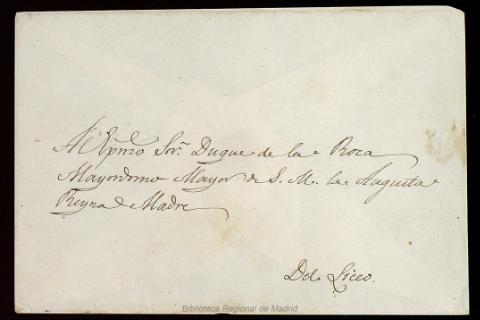 Al Exmo Sor. Duque de la Roca
Mayordomo Mayor de S. M. la Augusta
Reyna Madre
Del Liceo.
Biblioteca Regional de Madrid